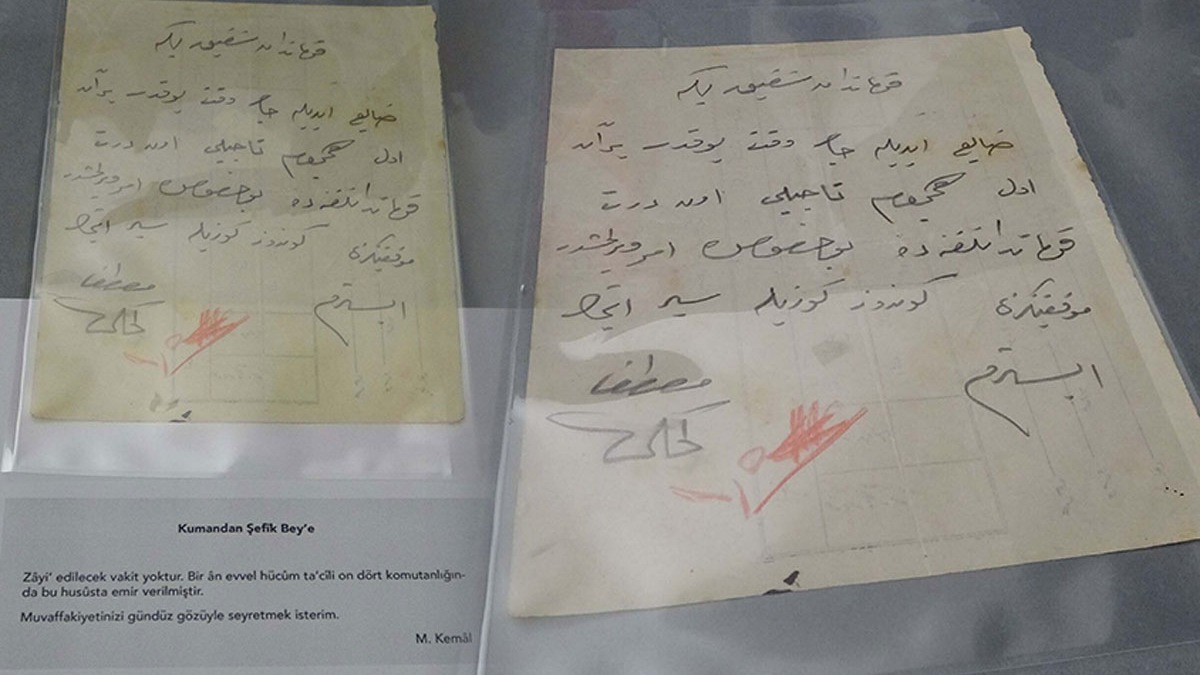 قوماندان شفیق بكه
ضایع ایدیله جك وقت یوقدر بر آن
اول هجوم تاجیلی اون درت
قومانداننلغنده بو خصوص امر ویرلمشدر
موفقیتكزی كوندوز كوزیله سیر ایتمك
ایسترم
مصطفی
كمال
قوماندان شفیق بكه
ضایع ایدیله جك وقت یوقدر بر آن
اول هجوم تاجیلی اون درت
قومانداننلغنده بو خصوص امر ویرلمشدر
موفقیتكزی كوندوز كوزیله سیر ایتمك
ایسترم
مصطفی
كمال
Kumandan Şefîk Bey'e
Zâyi' edilecek vakit yoktur. Bir ân evvel hücûm ta'cîli on dört komutanlığın-
da bu husûsta emir verilmiştir.
Muvaffakiyetinizi gündüz gözüyle seyretmek isterim.
M. Kemâl